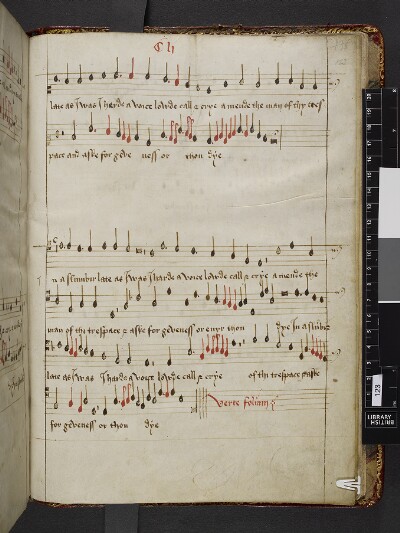 C li
late as I was I harde a voice lowde call & crye a mende the man of thy tres
pace and aske for geve ness or thou dye
n a slumbir late as I was I harde a voice lowde call & crye a mende the
man of thi trespace & aske for geveness or evyr thou dye In a slumbir
late as I was I harde a voice lowde call & crye of thi trespace & aske
for geveness or thou dye
verte folium
123
LIBRARY
BRITISH